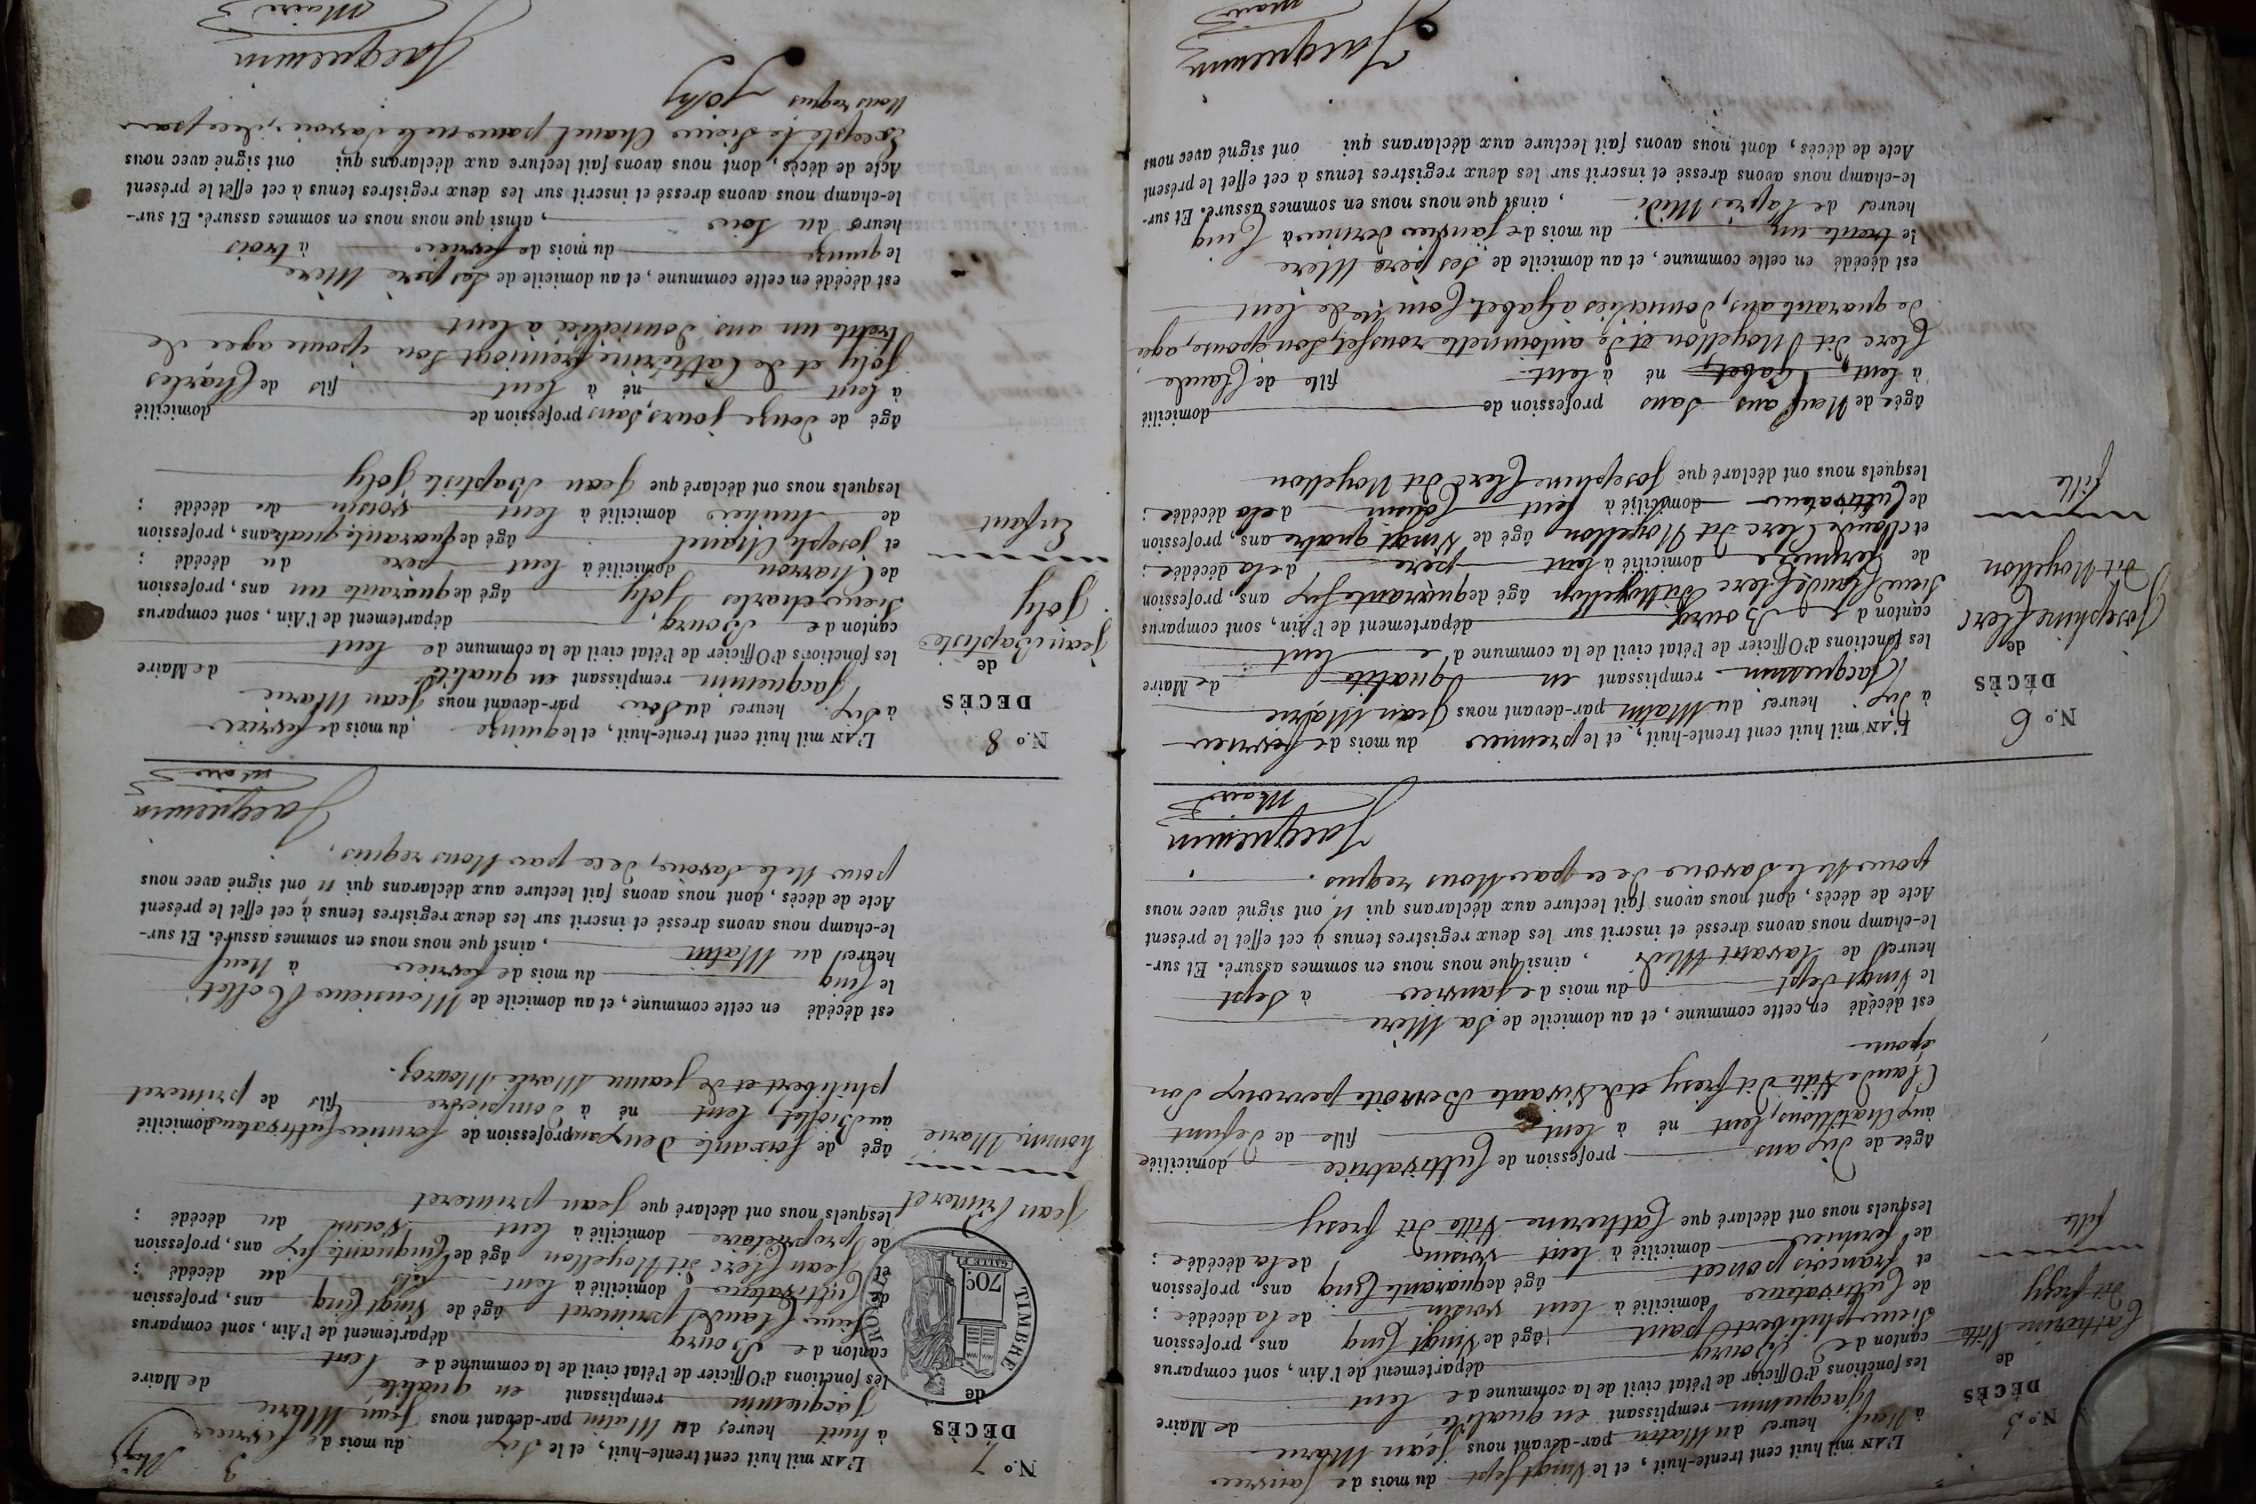 N.º 5
DÉCÈS
de
Catherine Vitte
dit fregy
fille
L'AN mil huit cent trente-huit, et le Vingt sept du mois de janvier
à Neuf heures du Matin par-devant nous Jean Marie
Jacquemin remplissant en qualité de Maire
les fonctions d'Officier de l'état civil de la commune de lent
canton de Bourg département de l'Ain, sont comparus
Sieur philibert paul âgé de Vingt Cinq ans, profession
de Cultivateur domicilié à lent voisin de la décédée ;
et francois poncet âgé de quarante Cinq ans, profession
de fermier domicilié à lent voisin de la décédée ;
lesquels nous ont déclaré que Catherine Vitte dit fregy
âgée de dix ans profession de Cultivatrice domiciliée
aux lent né à lent fille de defunt
Claude Vitte dit fregy et de Vivante Benoite perroux son
épouse
est décédé en cette commune, et au domicile de Sa Mère
le Vingt sept du mois de janvier à Sept
heures de lavant Midi, ainsi que nous nous en sommes assuré. Et sur-
le-champ nous avons dressé et inscrit sur les deux registres tenus à cet effet le présent
Acte de décès, dont nous avons fait lecture aux déclarans qui n'ont signé avec nous
pour Ne le Savoir de ce par Nous requis.
Jacquemin
Maire
N.º 6
DÉCÈS
de
Josephine Clerc
dit Moyellon
fille
L'AN mil huit cent trente-huit, et le premier du mois de fevrier
à dix heures du Matin par-devant nous Jean Marie
Jacquemin remplissant en qualité de Maire
les fonctions d'Officier de l'état civil de la commune de lent
canton de Bourg département de l'Ain, sont comparus
Sieur Claude Clerc dit Moyellon âgé de quarante six ans, profession
de fermier domicilié à lent père de la décédée ;
et Claude Clerc dit Moyellon âgé de Vingt quatre ans, profession
de Cultivateur domicilié à lent de la décédée ;
lesquels nous ont déclaré que Josephine Clerc dit Moyellon
âgée de Neuf ans Sans profession de domicilié
à lent, Gabet, né à lent fille de Claude
Clerc dit Moyellon et de antoinette rousset, son épouse, age
de quarante ans, domiciliés a Gabet Com.ne de lent
est décédé en cette commune, et au domicile de Ses père Mere
le trente un du mois de janvier dernier à Cinq
heures de l'après Midi, ainsi que nous nous en sommes assuré. Et sur-
le-champ nous avons dressé et inscrit sur les deux registres tenus à cet effet le présent
Acte de décès, dont nous avons fait lecture aux déclarans qui ont signé avec nous
Jacquemin
maire
3
N.º 7
DÉCÈS
de
Jean Primeret
homme Marié
TIMBRE ROYAL
70c
L'AN mil huit cent trente-huit, et le Six du mois de fevrier
à huit heures du Matin par-devant nous Jean Marie
Jacquemin remplissant en qualité de Maire
les fonctions d'Officier de l'état civil de la commune de lent
canton de Bourg département de l'Ain, sont comparus
Sieur Claude primeret âgé de Vingt Cinq ans, profession
de Cultivateur domicilié à lent fils du décédé ;
et Jean Clerc dit Moyellon âgé de Cinquante six ans, profession
de propriétaire domicilié à lent voisin du décédé ;
lesquels nous ont déclaré que Jean primeret
âgé de soixante deux ans profession de fermier Cultivateur domicilié
au lent né à dompierre fils de primeret
philibert et de Jeanne Marie
est décédé en cette commune, et au domicile de Monsieur Collet
le Cinq du mois de fevrier à Neuf
heures du Matin, ainsi que nous nous en sommes assuré. Et sur-
le-champ nous avons dressé et inscrit sur les deux registres tenus à cet effet le présent
Acte de décès, dont nous avons fait lecture aux déclarans qui n'ont signé avec nous
pour Ne le Savoir, de ce par Nous requis.
Jacquemin
maire
N.º 8
DÉCÈS
de
Jean Baptiste
Joly
Enfant
L'AN mil huit cent trente-huit, et le quinze du mois de fevrier
à six heures du Soir par-devant nous Jean Marie
Jacquemin remplissant en qualité de Maire
les fonctions d'Officier de l'état civil de la commune de lent
canton de Bourg, département de l'Ain, sont comparus
Sieur charles Joly âgé de quarante un ans, profession
de Charron domicilié à lent père du décédé ;
et Joseph Chanel âgé de quarante quatre ans, profession
de domicilié à lent voisin du décédé ;
lesquels nous ont déclaré que Jean Baptiste Joly
âgé de douze jours, sans profession de domicilié
à lent né à lent fils de Charles
Joly et de Catherine son épouse agée de
trente un ans, domiciliée à lent
est décédé en cette commune, et au domicile de Ses père Mère
le quinze du mois de fevrier à trois
heures du Soir, ainsi que nous nous en sommes assuré. Et sur-
le-champ nous avons dressé et inscrit sur les deux registres tenus à cet effet le présent
Acte de décès, dont nous avons fait lecture aux déclarans qui ont signé avec nous
Excepté le Sieur Chanel pour ne le Savoir, de ce par
Nous requis Joly
Jacquemin
Maire